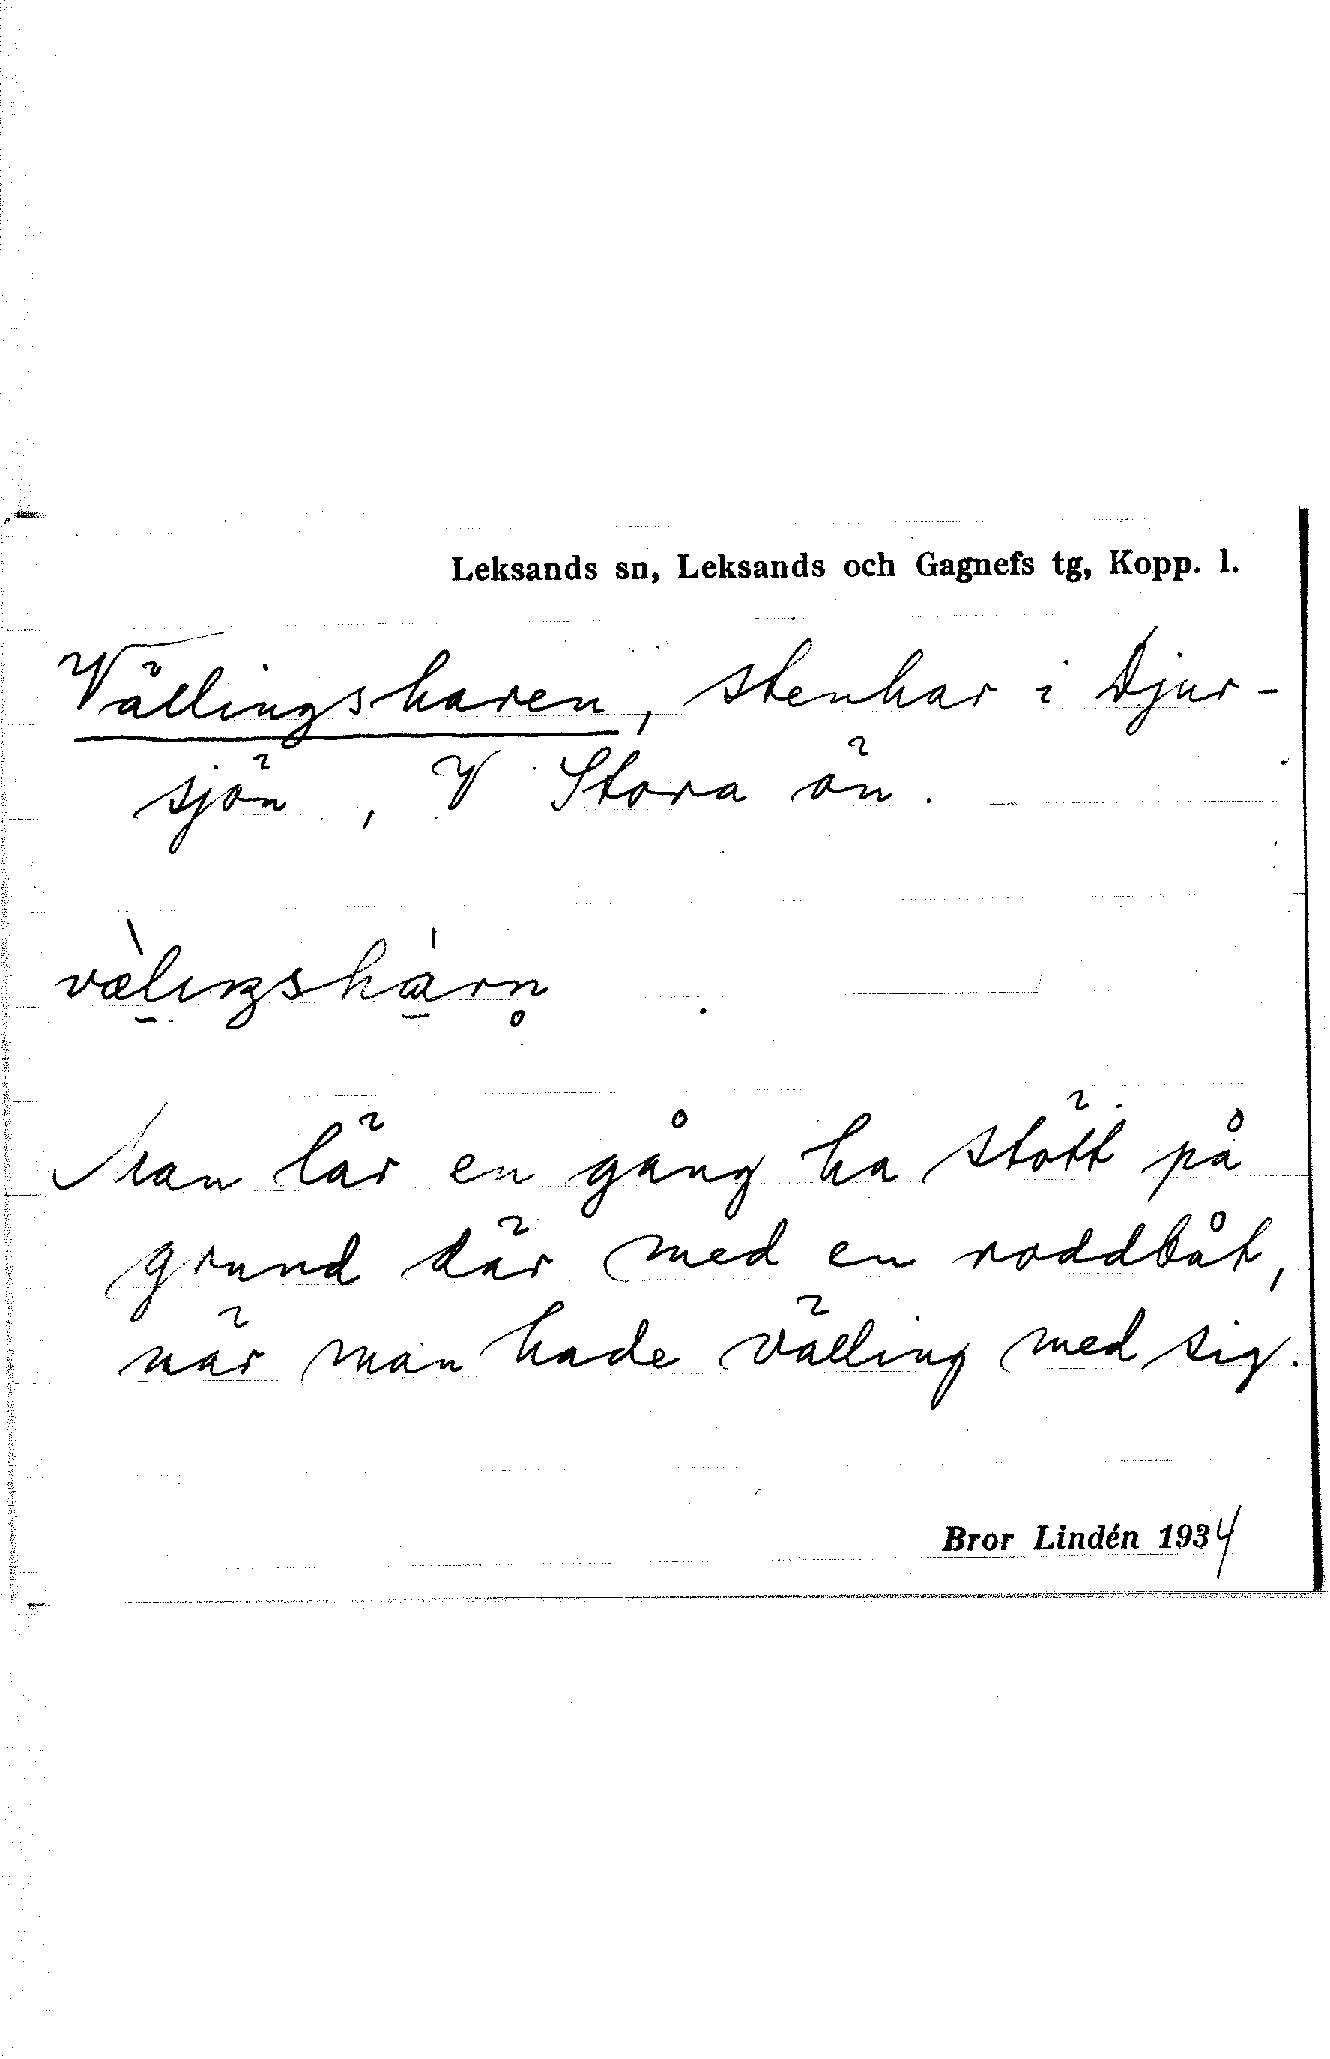 Leksands sn, Leksands och Gagnefs tg, Kopp. l.
Vällingsharen, stenhar i Djur-
sjön, V Stora ön.
væ̀lıŋshárn̥
Man lär en gång ha stött på
grund där med en roddbåt,
när man hade välling med sig.
Bror Lindén 1934